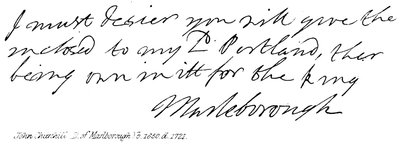 I must desier you will give the
inclosed to my Ld. Portland, ther
being own in itt for the king
Marleborough
John Churchill D. of Marlborough b. 1650. d. 1721.